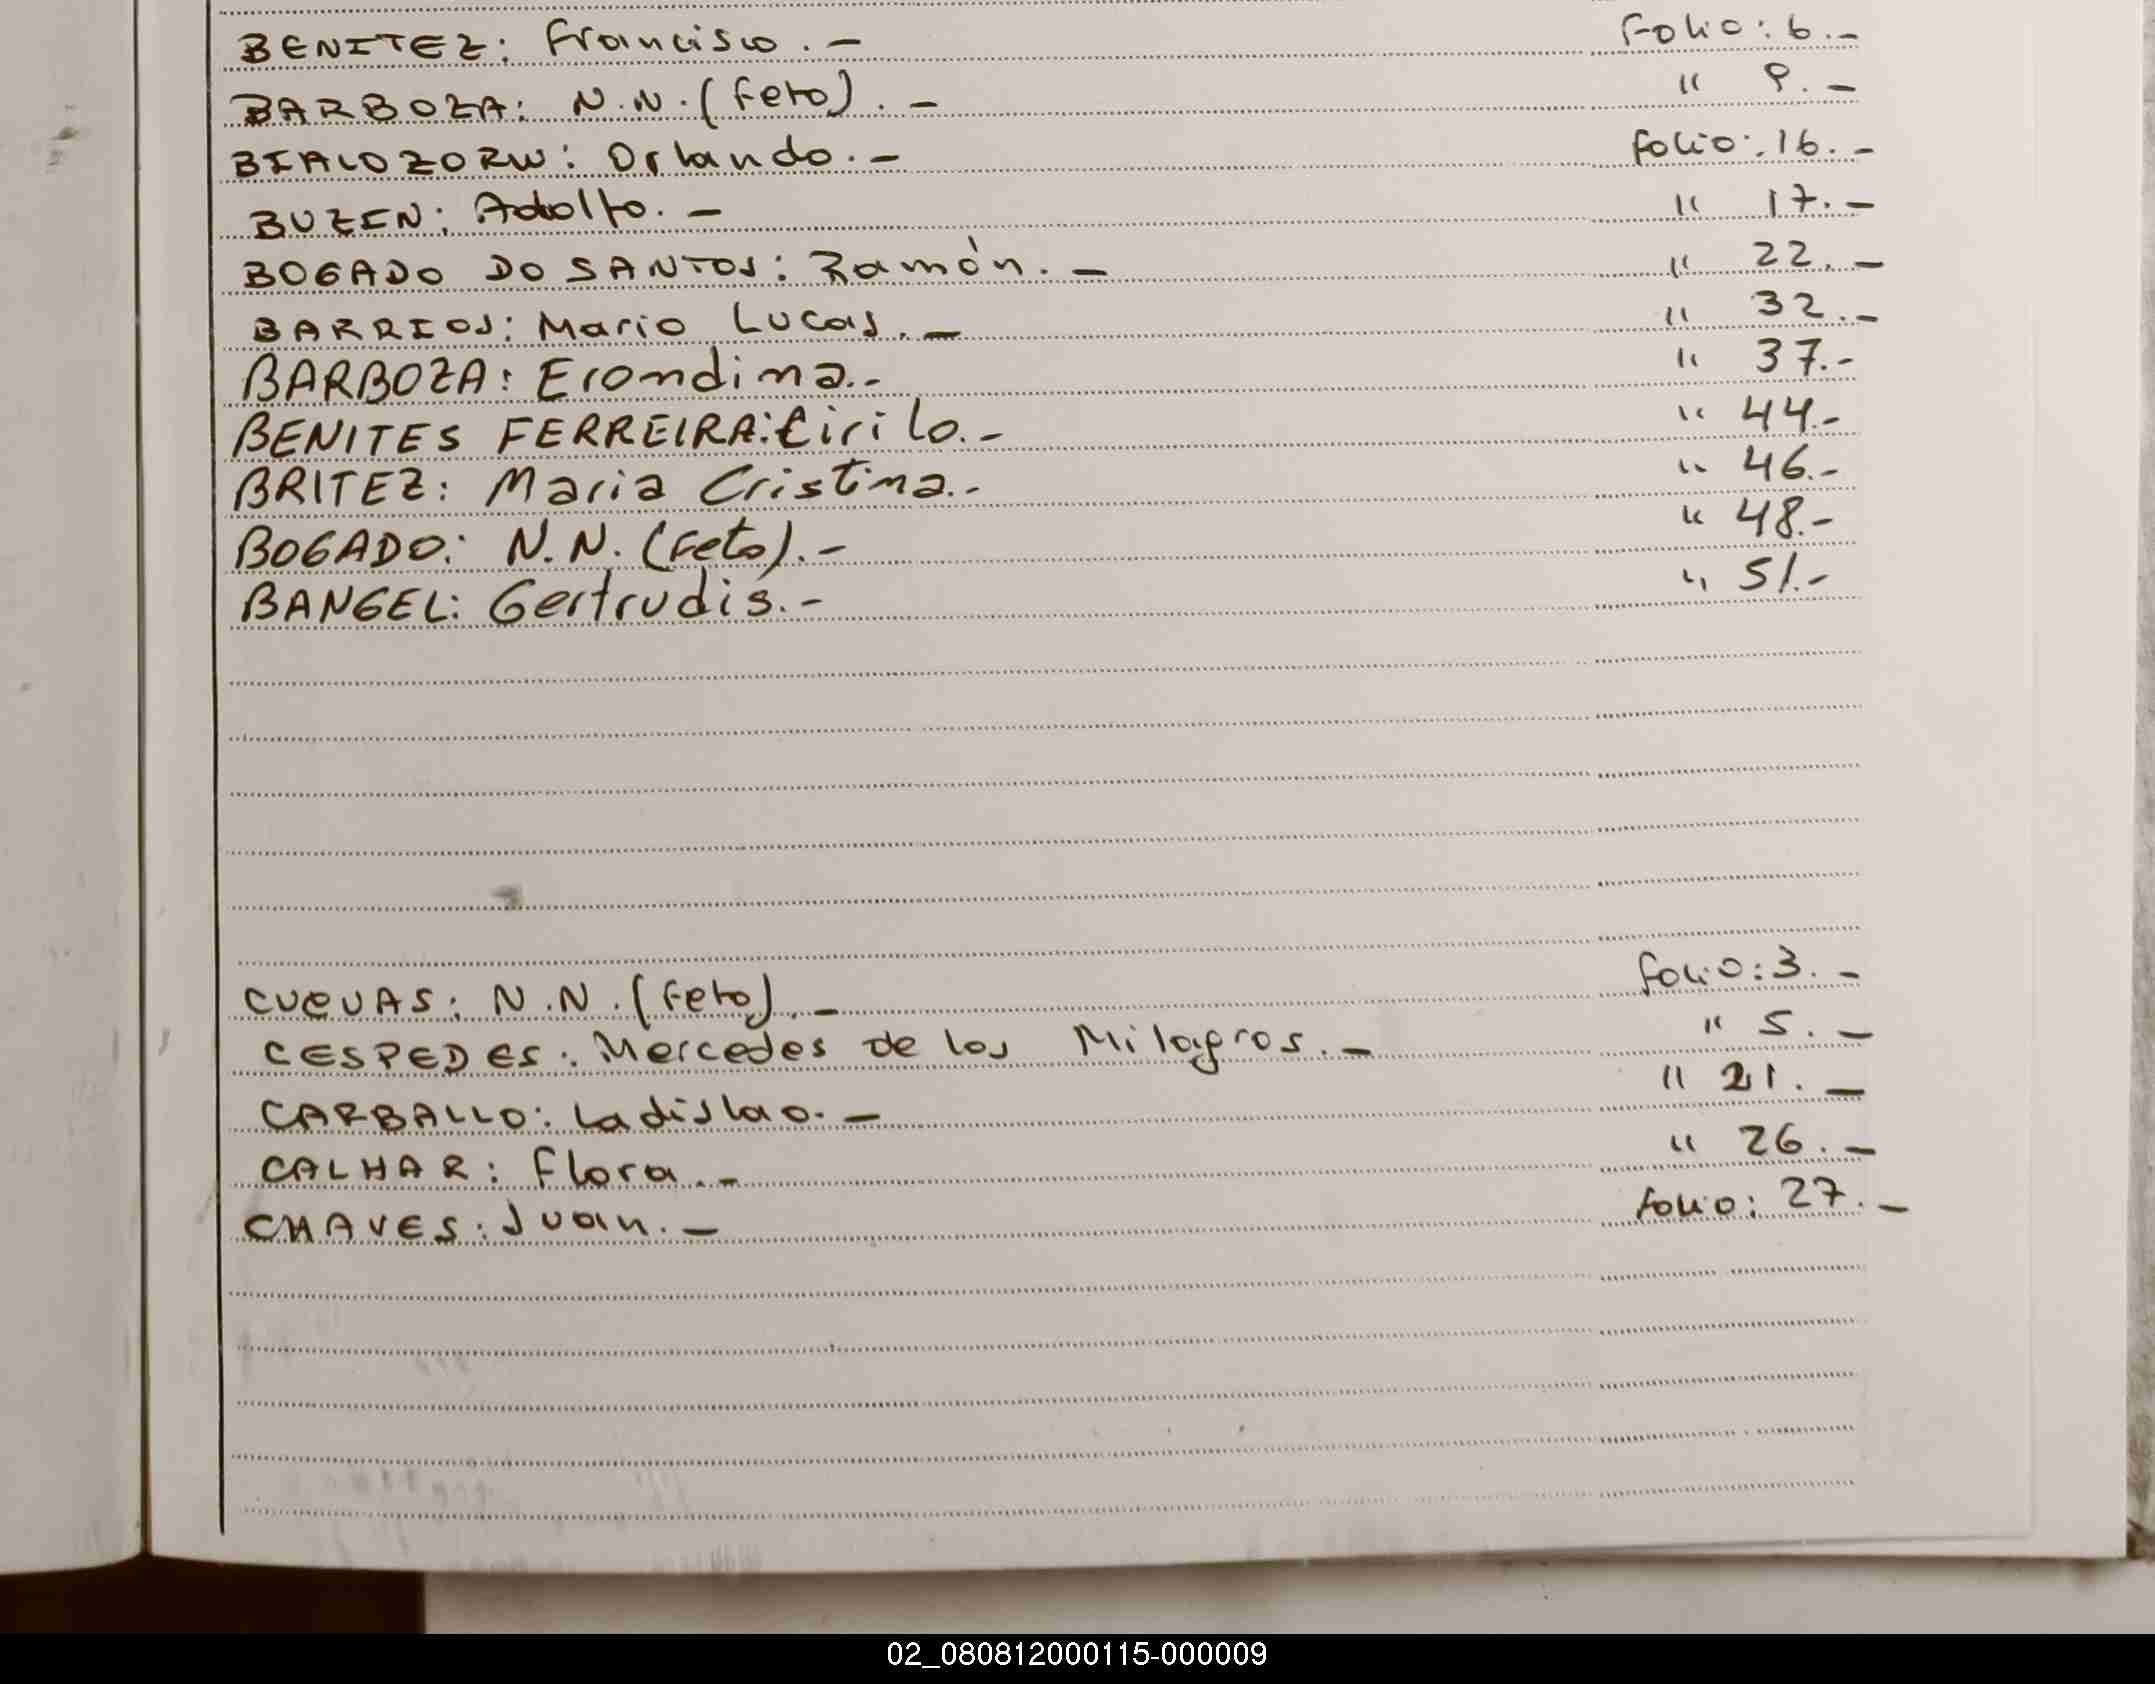 BENITEZ: Francisco.- Folio: 6.-
BARBOZA: N.N. (Feto).- " 9.-
BIALOZORW: Orlando.- folio: 16.-
BUZEN: Adolfo.- " 17.-
BOGADO DO SANTOS: Ramón.- " 22.-
BARRIOS: Mario Lucas.- " 32.-
BARBOZA: Erondina.- " 37.-
BENITES FERREIRA: Cirilo.- " 44.-
BRITEZ: Maria Cristina.- " 46.-
BOGADO: N.N. (Feto).- " 48.-
BANGEL: Gertrudis.- " 51.-
CUEVAS: N.N. (Feto).- folio: 3.-
CESPEDES: Mercedes de los Milagros.- " 5.-
CARBALLO: Ladislao.- " 21.-
CALHAR: Flora.- " 26.-
CHAVES: Juan.- folio: 27.-
02_080812000115-000009